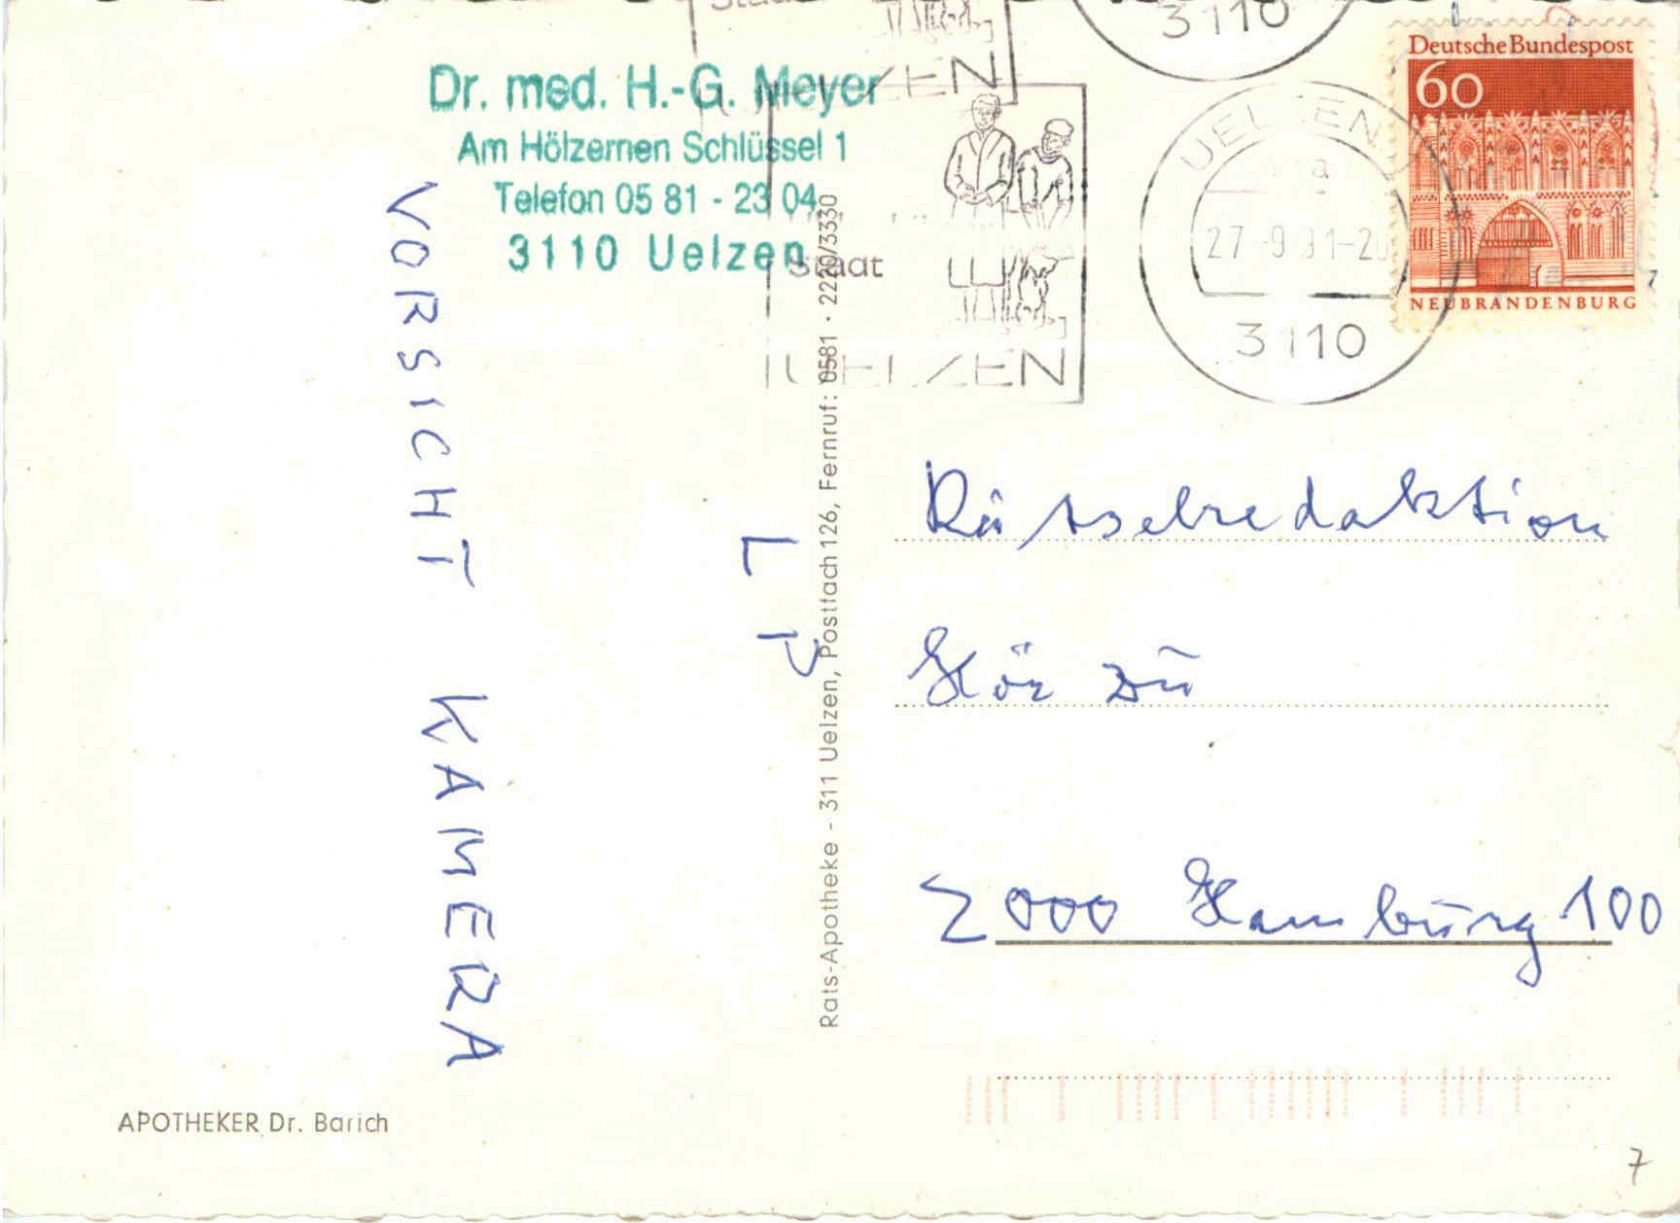 Dr. med. H.-G. Meyer
Am Hölzernen Schlüssel 1
Telefon 05 81 - 23 04
3110 Uelzen
VORSICHT KAMERA
L P
APOTHEKER Dr. Barich
Rats-Apotheke - 311 Uelzen, Postfach 126, Fernruf: 0581 · 2220/3330
ZEN
3110
Stadt
UELZEN
UELZEN
27.-9.91-20
3110
Deutsche Bundespost
60
NEUBRANDENBURG
Rätselredaktion
Hör Zu
2000 Hamburg 100
7